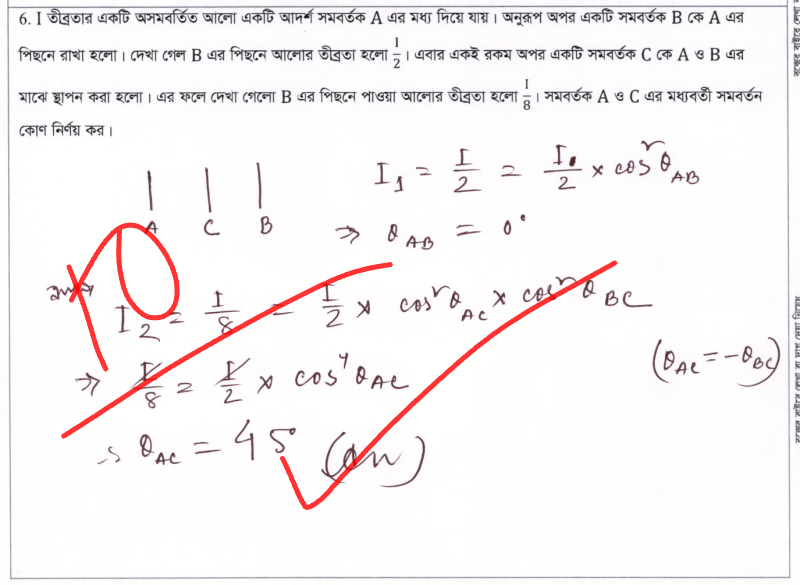 6. I তীব্রতার একটি অসমবর্তিত আলো একটি আদর্শ সমবর্তক A এর মধ্য দিয়ে যায়। অনুরূপ অপর একটি সমবর্তক B কে A এর
পিছনে রাখা হলো। দেখা গেল B এর পিছনে আলোর তীব্রতা হলো I/2। এবার একই রকম অপর একটি সমবর্তক C কে A ও B এর
মাঝে স্থাপন করা হলো। এর ফলে দেখা গেলো B এর পিছনে পাওয়া আলোর তীব্রতা হলো I/8। সমবর্তক A ও C এর মধ্যবর্তী সমবর্তন
কোণ নির্ণয় কর।
I₁ = I/2 = I/2 × cos²θ_AB
A C B
⇒ θ_AB = 0°
10
I₂ = I/8 = I/2 × cos²θ_AC × cos²θ_BC
(θ_AC = -θ_BC)
⇒ I/8 = I/2 × cos⁴θ_AC
∴ θ_AC = 45° (Ans)